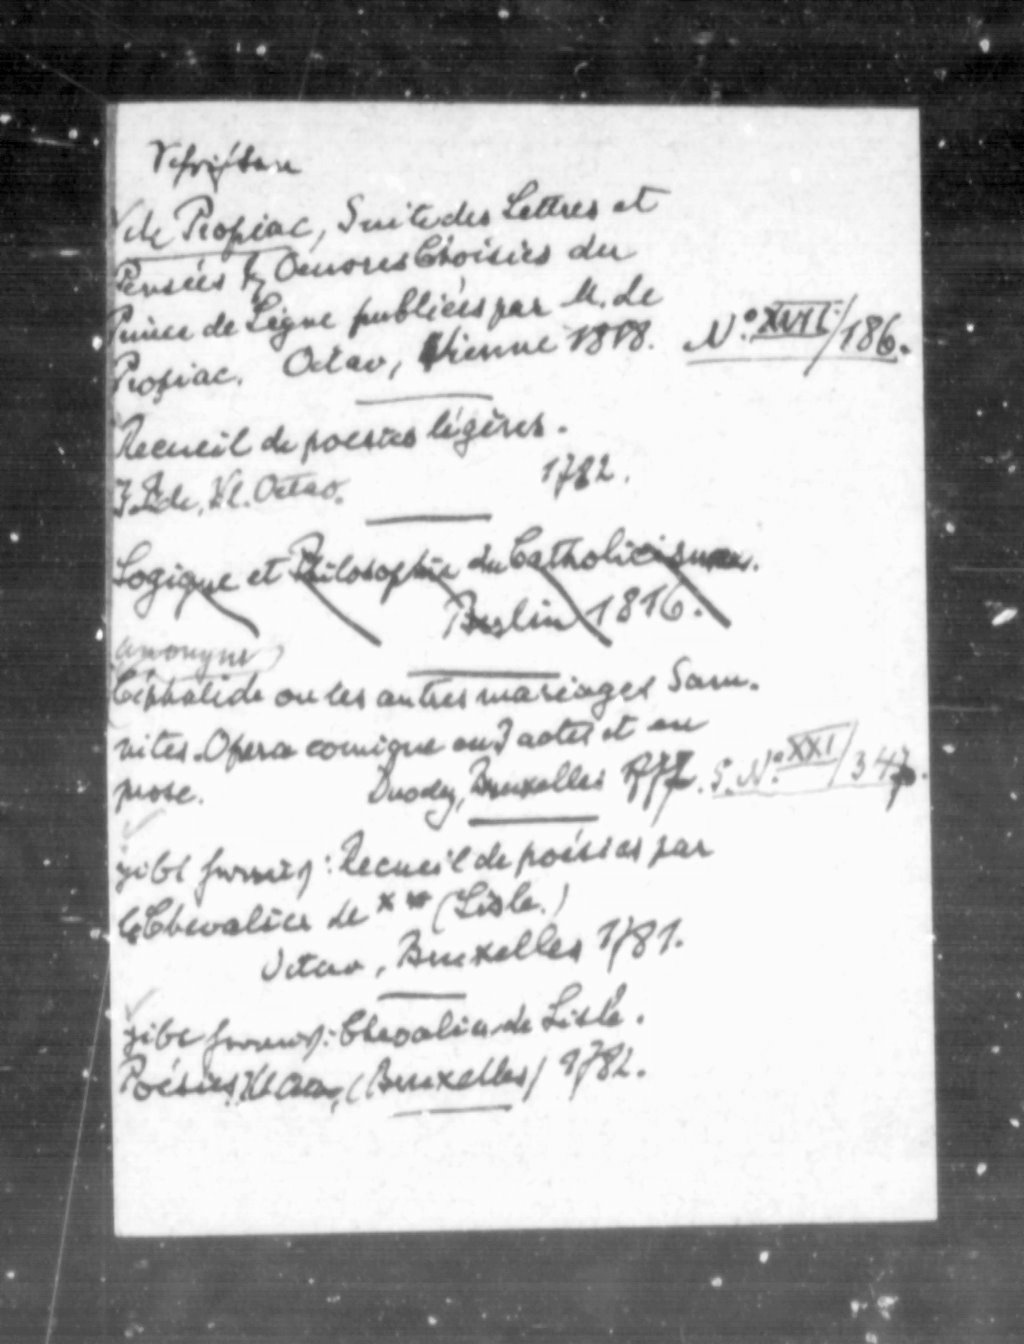 Schriften
de Propiac, Suite des Lettres et
Pensées & Oeuvres Choisies du
Prince de Ligne publiées par M. de
Propiac. Octav, Vienne 1818. No. XVII/186.
Recueil de poesies légères.
Kl. Octav. 1782.
Logique et Philosophie du Catholicisme.
Berlin 1816.
(anonyme)
Céphalide ou les autres mariages Sam-
nites. Opera comique en 3 actes et en
prose. Duodez, Bruxelles 1777. S. No. XXI/347.
gibt heraus: Recueil de poésies par
le Chevalier de x x x (Lisle.)
Octav, Bruxelles 1781.
gibt heraus: Chevalier de Lisle.
Poésies, Kl. Octav, (Bruxelles) 1782.